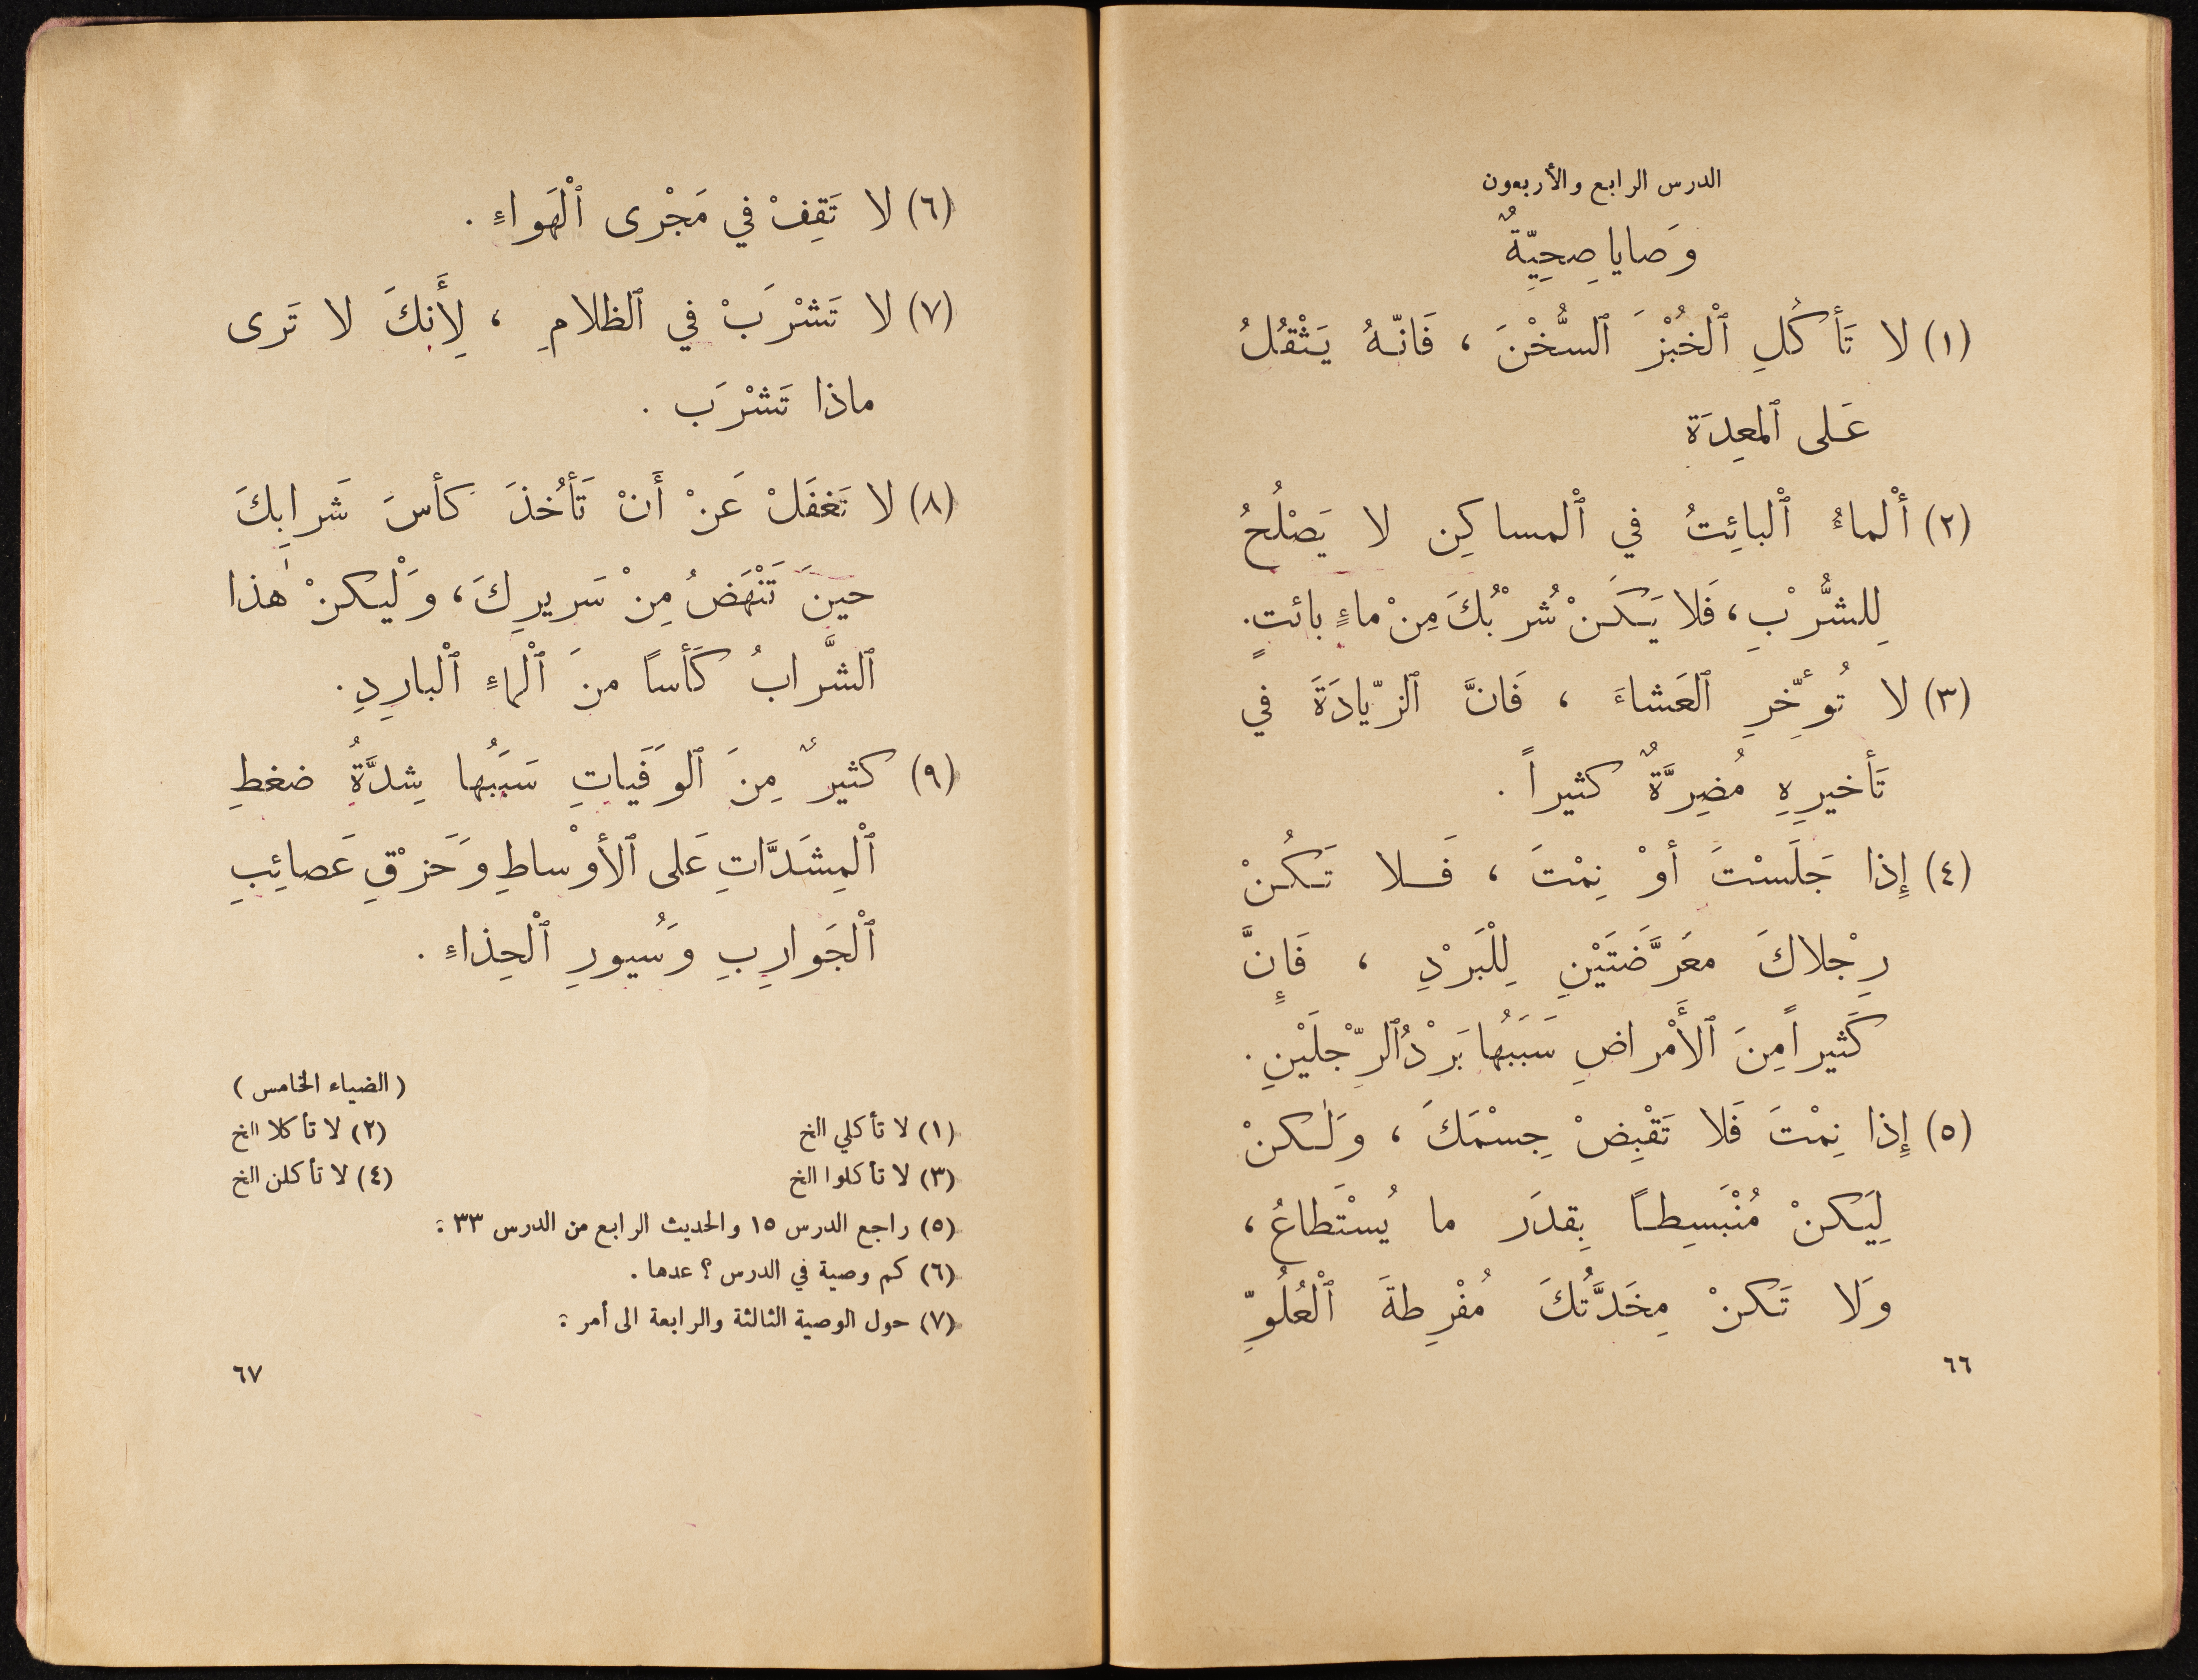 الدرس الرابع والأربعون
وَصايا صِحِيّةٌ
(١) لا تَأكُلِ ٱلْخُبْزَ ٱلسُّخْنَ ، فَانّهُ يَثْقُلُ
عَلى ٱلمعِدَة
(٢) أَلْماءُ ٱلْبائِتُ في ٱلْمساكِن لا يَصْلُحُ
لِلشُّرْبِ ، فَلا يَكَنْ شُرْبُكَ مِنْ ماءٍ بائتٍ .
(٣) لا تُوءَخِّرِ ٱلعَشاءَ ، فَانَّ ٱلزّيادَةَ في
تَأخيرِهِ مُضِرَّةٌ كثيراً .
(٤) إِذا جَلَسْتَ أوْ نِمْتَ ، فَلا تَكُنْ
رِجْلاكَ معَرَّضَتَيْنِ لِلْبَرْدِ ، فَإِنَّ
كَثيراً مِنَ ٱلأَمْراضِ سَبَبُها بَرْدُ ٱلرِّجْلَيْنِ .
(٥) إِذا نِمْتَ فَلا تَقْبِضْ جِسْمَكَ ، وَلٰكنْ
لِيَكنْ مُنْبَسِطاً بِقدَر ما يُسْتَطاعُ ،
وَلا تَكنْ مِخَدَّتُكَ مُفْرِطةَ ٱلْعُلُوِّ
٦٦
(٦) لا تَقِفْ في مَجْرى ٱلْهَواءِ .
(٧) لا تَشْرَبْ في ٱلظلامِ ، لِأَنكَ لا تَرى
ماذا تَشْرَب .
(٨) لا تَغفَلْ عَنْ أَنْ تَأخُذَ كأسَ شَرابِكَ
حينَ تَنْهَضُ مِنْ سَريرِكَ ، وَلْيكنْ هٰذا
ٱلشَّرابُ كَأساً منَ ٱلْماءِ ٱلْبارِدِ .
(٩) كثيرٌ مِنَ ٱلوَفَياتِ سَبَبُها شِدَّةُ ضغطِ
ٱلْمِشَدَّاتِ عَلى ٱلأوْساطِ وَحَزْقِ عَصائِبِ
ٱلْجَوارِبِ وَسُيورِ ٱلْحِذاءِ .
( الضياء الخامس )
(١) لا تأكلي الخ (٢) لا تأكلا الخ
(٣) لا تأكلوا الخ (٤) لا تأكلن الخ
(٥) راجع الدرس ١٥ والحديث الرابع من الدرس ٣٣ :
(٦) كم وصية في الدرس ؟ عدها .
(٧) حول الوصية الثالثة والرابعة الى أمر :
٦٧